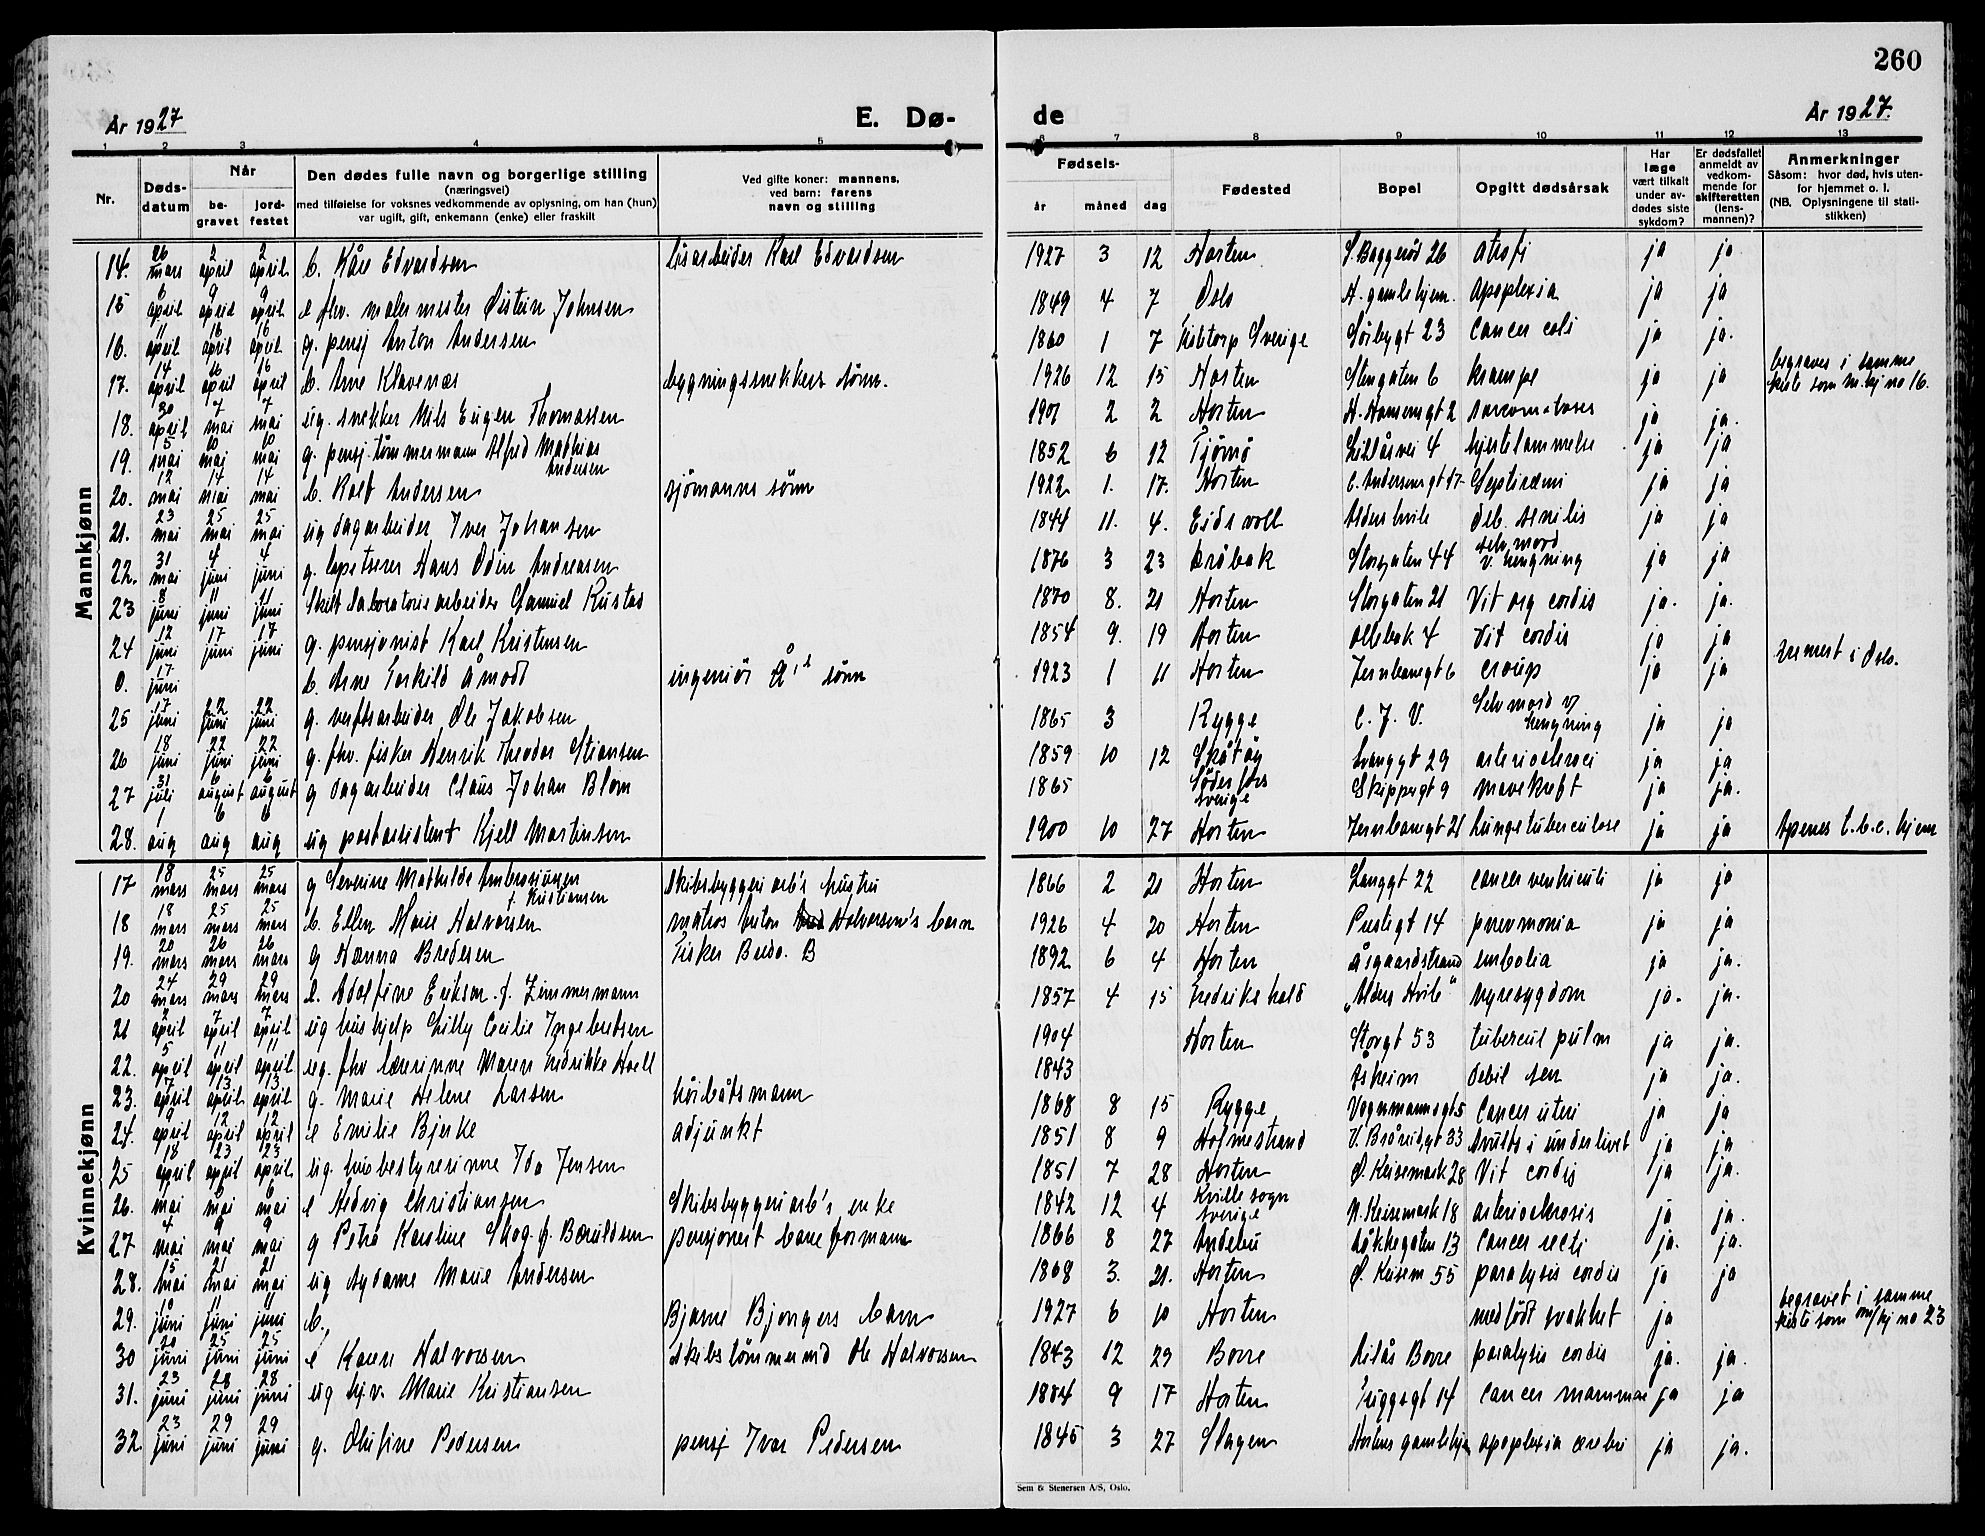 260
År 1927
E. Dø-
de
År 1927.
1 2 3 4 5 6 7 8 9 10 11 12 13
Nr.
Døds-
datum
Når
be-
gravet
jord-
festet
Den dødes fulle navn og borgerlige stilling
(næringsvei)
med tilføielse for voksnes vedkommende av oplysning, om han (hun)
var ugift, gift, enkemann (enke) eller fraskilt
Ved gifte koner: mannens,
ved barn: farens
navn og stilling
Fødsels-
år måned dag
Fødested
Bopel
Opgitt dødsårsak
Har
læge
vært tilkalt
under av-
dødes siste
sykdom?
Er dødsfallet
anmeldt av
vedkom-
mende for
skifteretten
(lens-
mannen)?
Anmerkninger
Såsom: hvor død, hvis uten-
for hjemmet o. l.
(NB. Oplysningene til stati-
stikken)
Mannkjønn
14. 26 mars 2 april 2 april b. Kåre Edvardsen Karl Edvardsen 1927 3 12 Horten 26 atrofi ja ja
15 6 april 9 april 9 april e fhv. malermester Øistein Johnsen 1849 4 7 Oslo H. gamlehjem. apoplexia ja ja
16. 11 april 16 april 16 april g. pensj Anton Andersen 1860 1 7 Sverige Sørbygt 23 cancer coli ja ja.
17. 14 april 16 april 16 april b. Arne Klavenæs bygningssnekkers sønn. 1926 12 15 Horten Stengaten 6 krampe ja ja begraves i samme
kiste som m.kj no 16.
18. 30 april 7 mai 7 mai ug. snekker Nils Eugen Thomassen 1901 2 2 Horten H. Hansensgt 2 ja ja.
19. 5 mai 10 mai 10 mai g. pensj. tømmermann Alfred Mathias
Andersen 1852 6 12 Tjømø Lillåsvei 4 hjertelammelse ja ja
20. 12 mai 14 mai 14 mai b. Rolf Andersen sjømanns sønn 1922 1. 17. Horten C. Andersensgt 17 Septicæmi ja ja
21. 23 mai 25 mai 25 mai ug dagarbeider Iver Johansen 1844 11. 4. Eidsvoll Alders hvile deb. senilis ja ja
22. 31 mai 4 juni 4 juni g. tapetserer Hans Odin Andreasen 1876 3 23 Drøbak Storgaten 44 selvmord
v. hengning ja ja
23 8 juni 11 juni 11 juni Skilt laboratoriearbeider Samuel Rustad 1870 8. 21 Horten Storgaten 21 Vit org cordis ja. ja.
24 12 juni 17 juni 17 juni g. pensjonist Karl Kristensen 1854 9. 19 Horten Ollebak 4 Vit cordis ja ja
0. 17 juni b. Arne Torkild Åmodt ingeniør Å's sønn 1923 1 11 Horten Jernbanegt 6 croup ja ja i Oslo.
25 17 juni 22 juni 22 juni g. verftsarbeider Ole Jakobsen 1865 3 Rygge C. J. V. Selvmord v/
hengning ja ja
26 18 juni 22 juni 22 juni g. fhv. fisker Henrik Theodor Stiansen 1859 10 12 Skåtøy Langgt 29 ja ja
27 31 juli 6 august 6 august g dagarbeider Claus Johan Blom 1865 Söderfors
Sverige Skippergt 9 mavekreft ja ja.
28. 1 aug 6 aug 6 aug ug postassistent Kjell Martinsen 1900 10 27 Horten Jernbanegt 21 lungetuberculose ja ja Apenes t.b.c. hjem
Kvinnekjønn
17 18 mars 25 mars 25 mars g Severine Mathilde Ambrosiussen
f. Kristiansen Skibsbyggeri arb's hustru 1866 2 21 Horten Langgt 22 cancer ventriculi ja ja
18 18 mars 25 mars 25 mars b. Ellen Marie Halvorsen matros Anton Halvorsen's barn 1926 4 20 Horten Prestegt 14 pneumonia ja ja
19. 20 mars 26 mars 26 mars g Hanna Bredesen Fisker Brede. B 1892 6 4 Horten Åsgaardstrand embolia ja ja.
20 24 mars 29 mars 29 mars e. Adolfine Erikson f. Zimmermann 1857 4 15 Fredrikshald "Alders Hvile" nyresygdom ja. ja.
21 2 april 7 april 7 april ug hushjelp Lilly Cecilie Ingebretsen 1904 Horten Storgt 53 tubercul pulm ja ja.
22. 5 april 11 april 11 april ug. fhv lærerinne Maren Fredrikke Hoell 1843 Åsheim debil sen ja ja.
23. 7 april 13 april 13 april g. Marie Helene Larsen høibåtsmann 1868 8 15 Rygge Vognmannsgt 5 Cancer uteri ja ja
24. 9 april 12 april 12 april e Emilie Bjerke adjunkt 1851 8 9 Holmestrand V. Bråredgt 33 svulst i underlivet ja ja
25 18 april 23 april 23 april ug. husbestyrerinne Ida Jensen 1851 7 28 Horten Ø. Keisemark 28 Vit cordis ja ja.
26. mai 6 mai 6 mai e Hedvig Christiansen Skibsbyggeri arb's enke 1842 12 4 Kville sogn
Sverige N. Keisemark 18 arteriosclerosis ja ja.
27 4 mai 9 mai 9 mai g Petra Karoline Skog. f. Bæruldsen pensjonert baneformann 1866 8 27 Andebu Løkkegaten 13 cancer recti ja. ja.
28. 15 mai 21 mai 21 mai ug Aydame Marie Andersen 1868 3. 21. Horten Ø. Keisem 55 paralysis cordis ja ja
29. 10 juni 11 juni 11 juni b. Bjarne Bjongers barn 1927 6 10 Horten medfødt svakhet ja begravet i samme
kiste som m/kj no 23
30 20 juni 25 juni 25 juni e Karen Halvorsen Skibstømmermd Ole Halvorsen 1843 12 29 Borre Liås Borre paralysis cordis ja. ja.
31. 23 juni 28 juni 28 juni ug hjv. Marie Kristiansen 1884 9 17 Horten Tryggsgt 14 cancer mammae ja ja
32. 23 juni 29 juni 29 juni g. Olufine Pedersen pensj Ivar Pedersen 1845 3 27 Slagen Hortens gamlehjem apoplexia cerebri ja ja.
Sem & Stenersen A/S, Oslo.